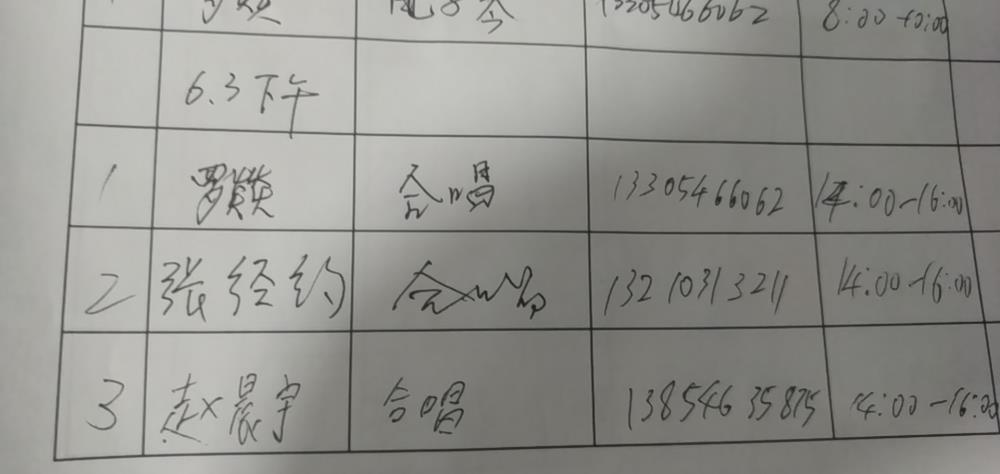 13305466062 8:00-10:00
6.3下午
1 罗赟 合唱 13305466062 14:00-16:00
2 张经约 合唱 13210313211 14:00-16:00
3 赵晨宇 合唱 13854635875 14:00-16:00